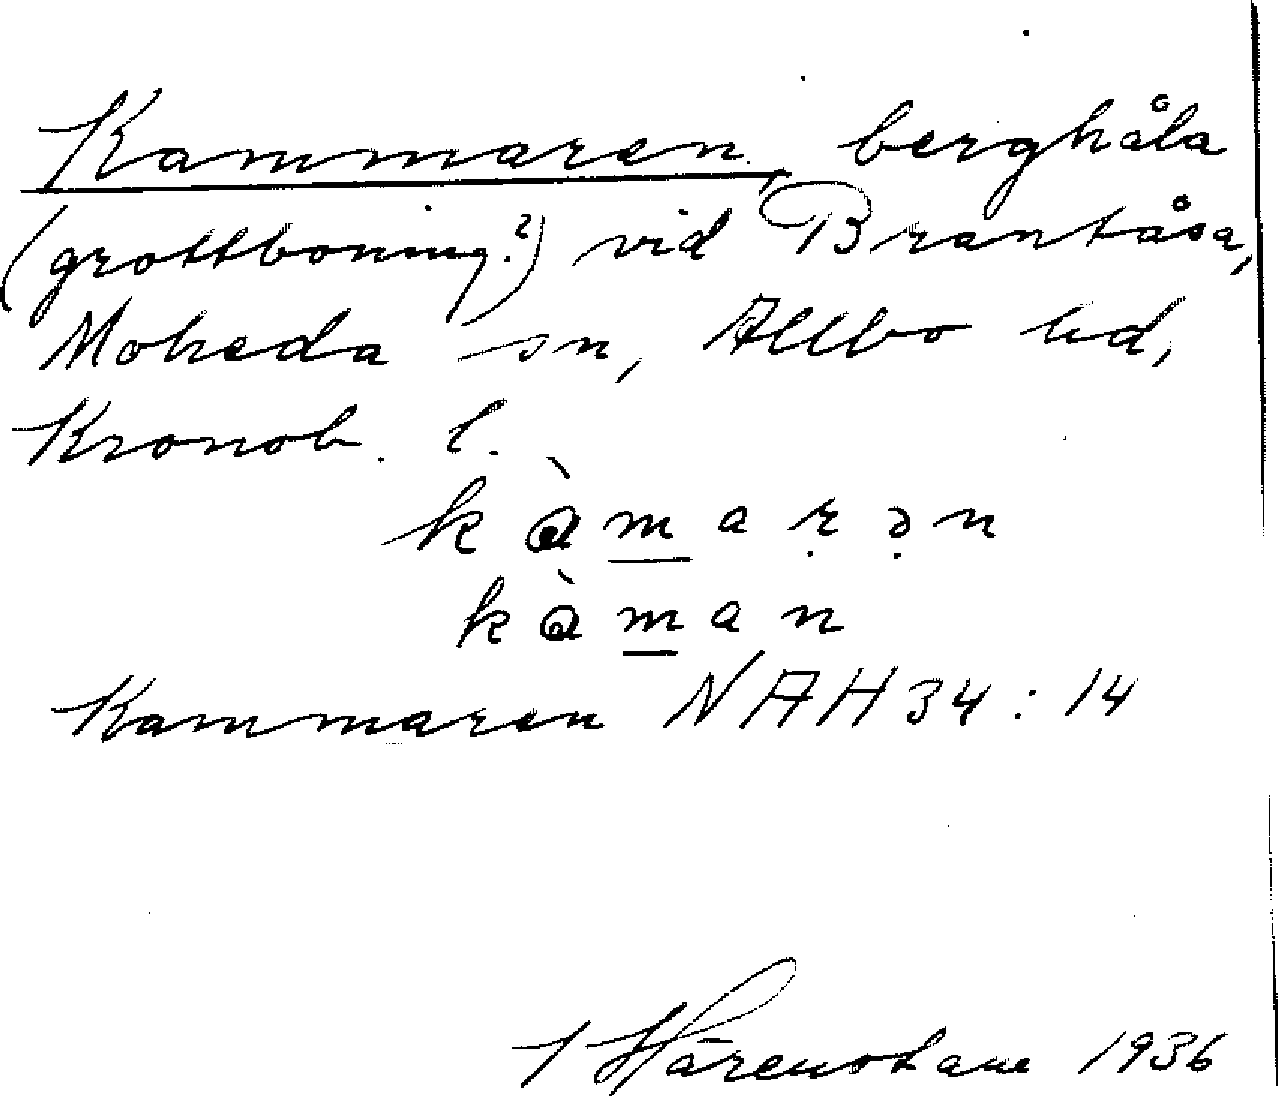 Kammaren, berghåla
(grottboning?) vid Brantåsa,
Moheda sn, Allbo hd,
Kronob. l.
kàmarən
kàman
Kammaren NAH 34:14
Härenstam 1936